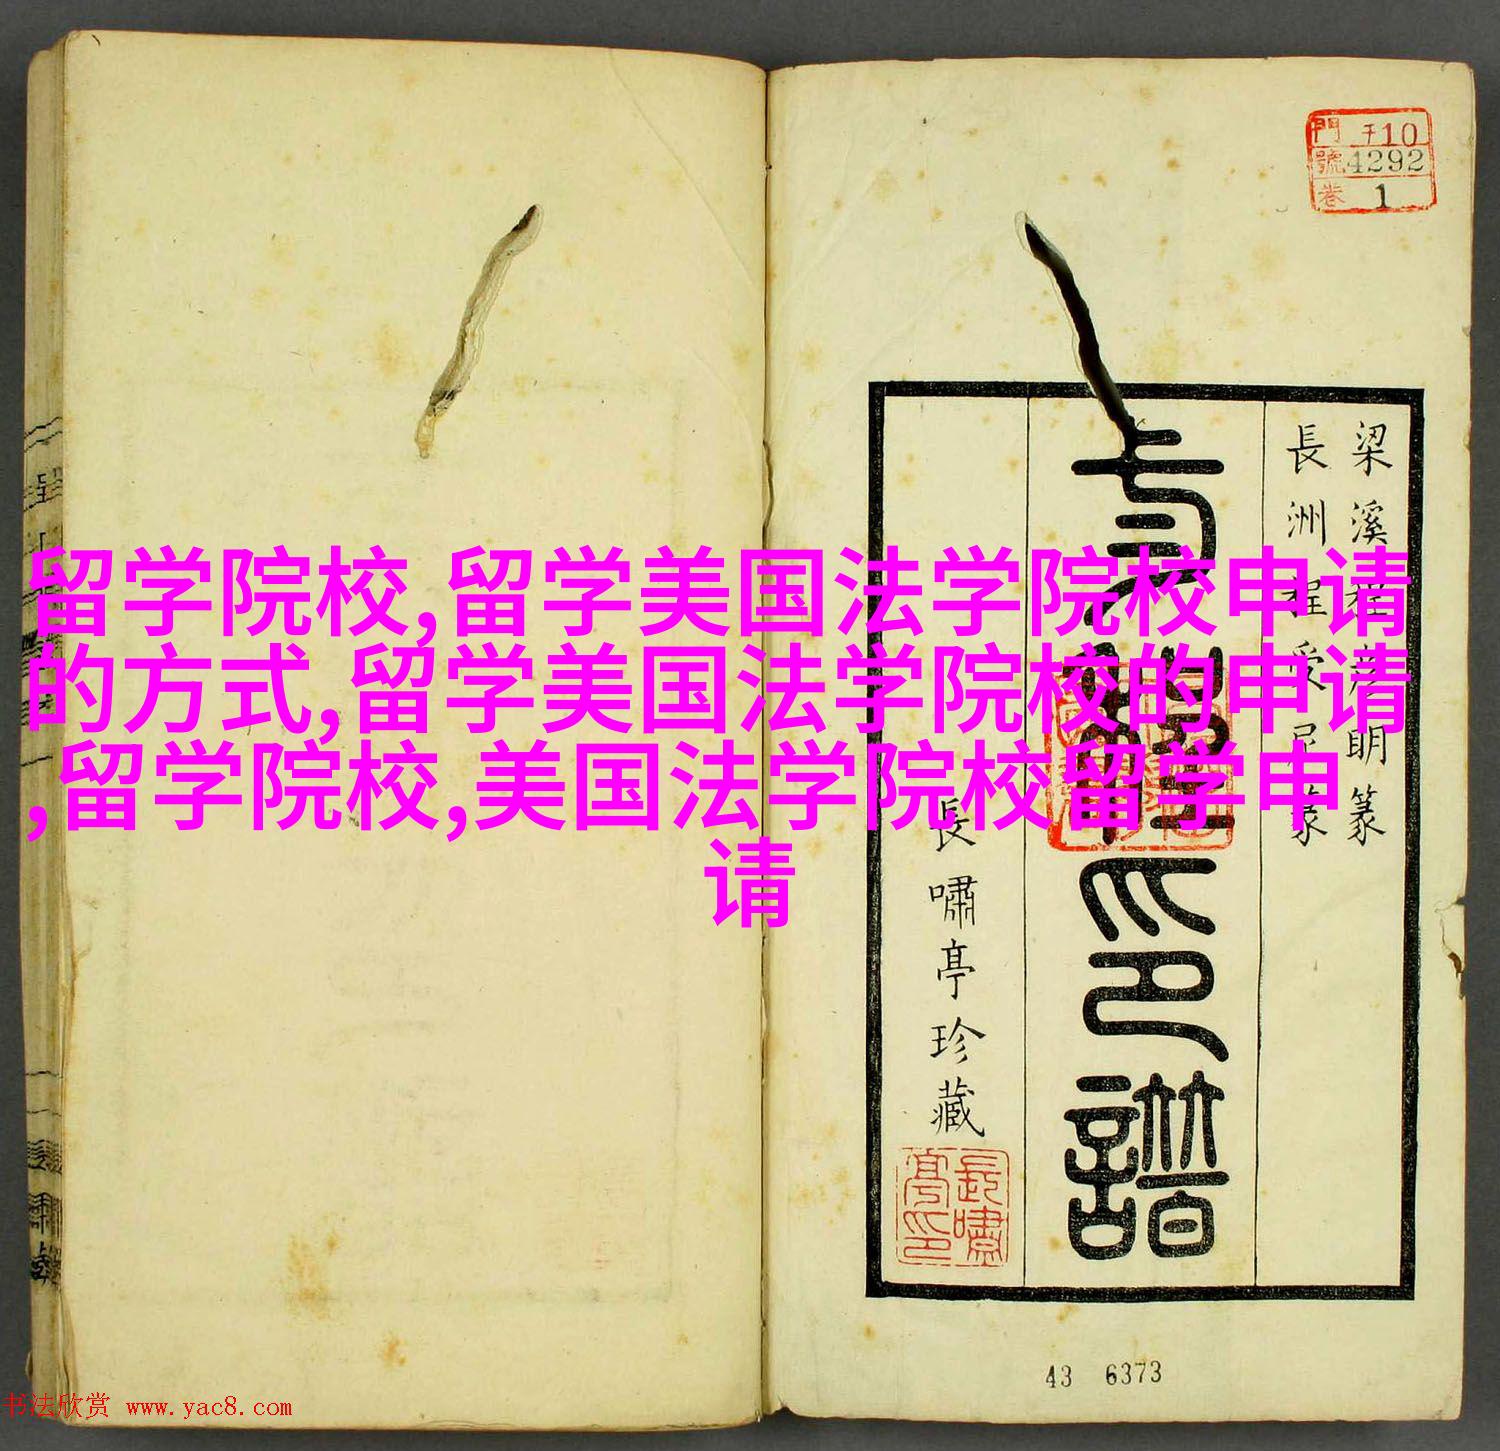 門 子10
號 4292
卷 1
梁溪
明篆
長洲程受
篆
印譜
長嘯亭珍藏
長嘯亭印
留学院校,留学美国法学院校申请
的方式,留学美国法学院校的申请
,留学院校,美国法学院校留学申
请
43 6373
书法欣赏 www.yac8.com